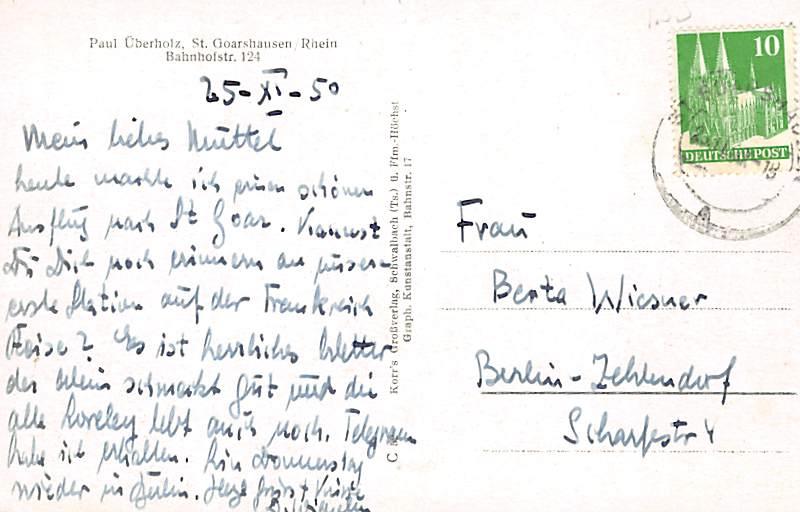 Paul Überholz, St. Goarshausen/Rhein
Bahnhofstr. 124
25-XI-50
Mein liebes Muttel
heute machte ich einen schönen
Ausflug nach St Goar. Kannst
Du Dich noch erinnern an unsere
erste Station auf der Frankreich
Reise? Es ist herrliches Wetter
der Wein schmeckt gut und die
alte Loreley lebt auch noch. Telegramm
habe ich erhalten. Bin Donnerstag
wieder in Berlin. Herzl Grüße + Küsse
Korr's Großverlag, Schwalbach (Ts.) u. Ffm.-Höchst
Graph. Kunstanstalt, Bahnstr. 17
C
10
DEUTSCHE POST
Frau
Berta Wiesner
Berlin-Zehlendorf
Scharfestr 4